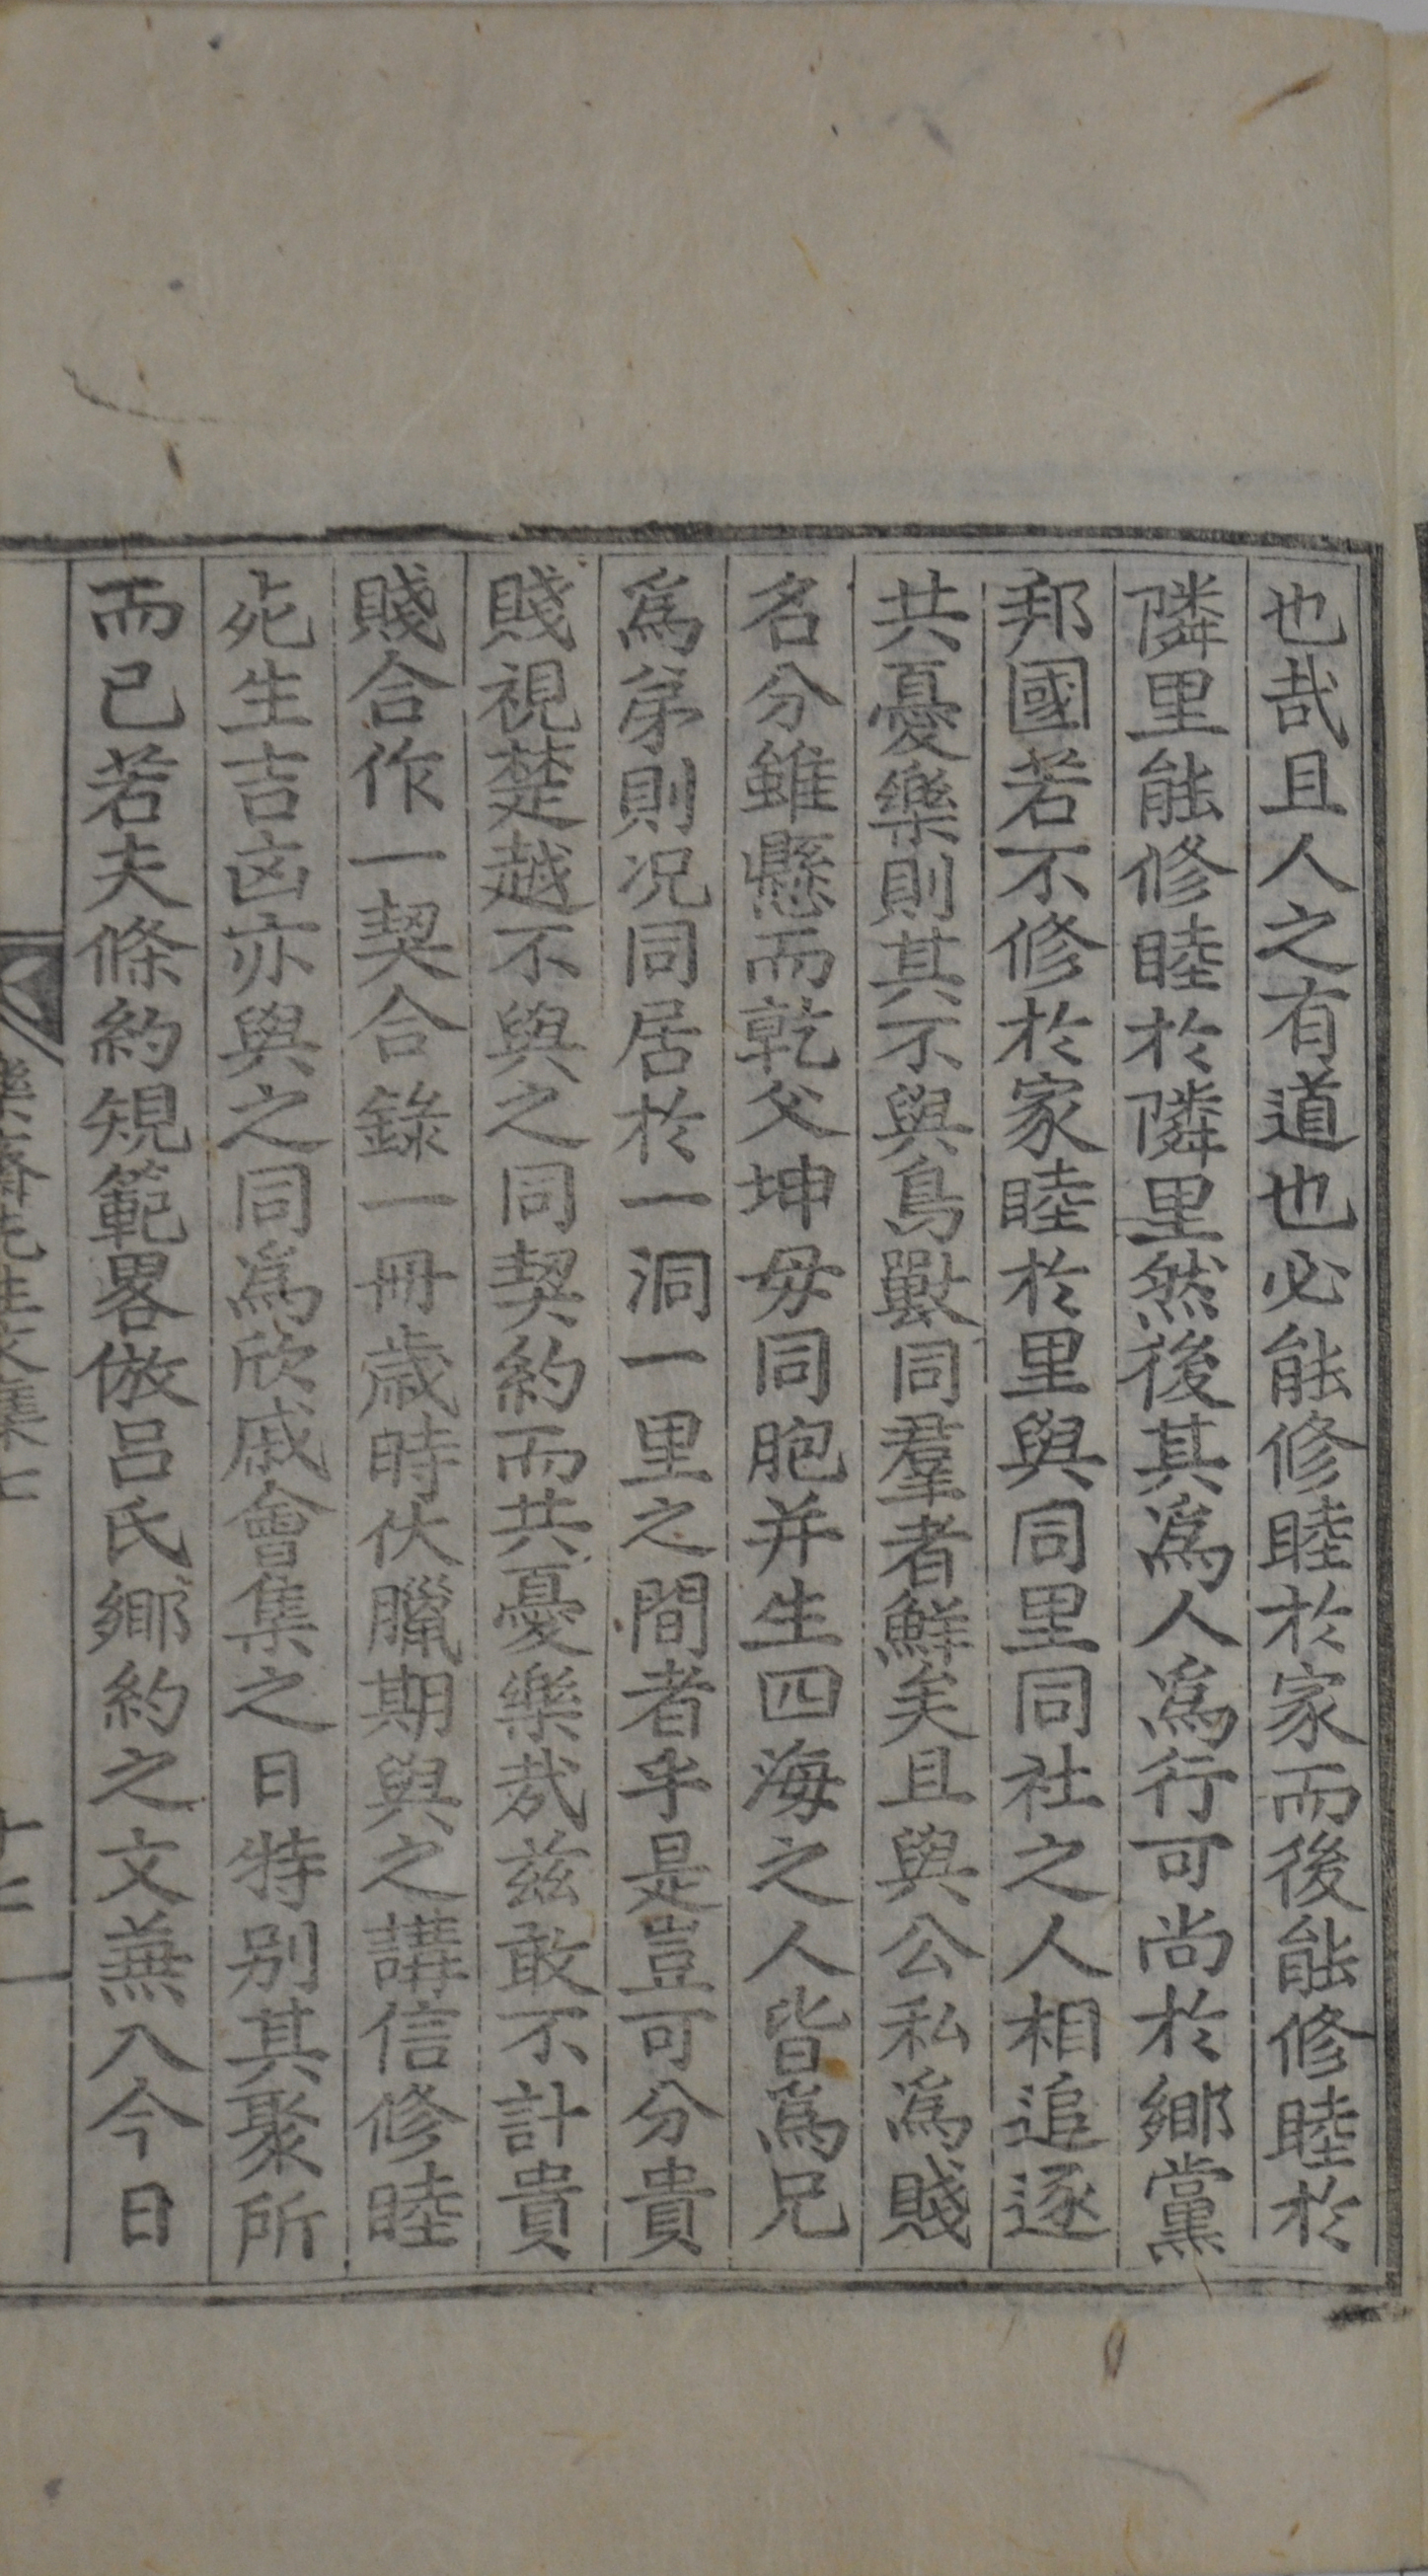 也哉且人之有道也必能修睦於家而後能修睦於
隣里能修睦於隣里然後其爲人爲行可尚於鄕黨
邦國若不修於家睦於里與同里同社之人相追逐
共憂樂則其不與鳥獸同羣者鮮矣且與公私爲賤
名分雖懸而乾父坤母同胞并生四海之人皆爲兄
爲弟則况同居於一洞一里之間者乎是豈可分貴
賤視楚越不與之同契約而共憂樂哉兹敢不計貴
賤合作一契合錄一冊歲時伏臘期與之講信修睦
死生吉凶亦與之同爲欣戚會集之日特别其聚所
而已若夫條約規範畧倣呂氏鄕約之文兼入今日
樂齋先生文集七
十二